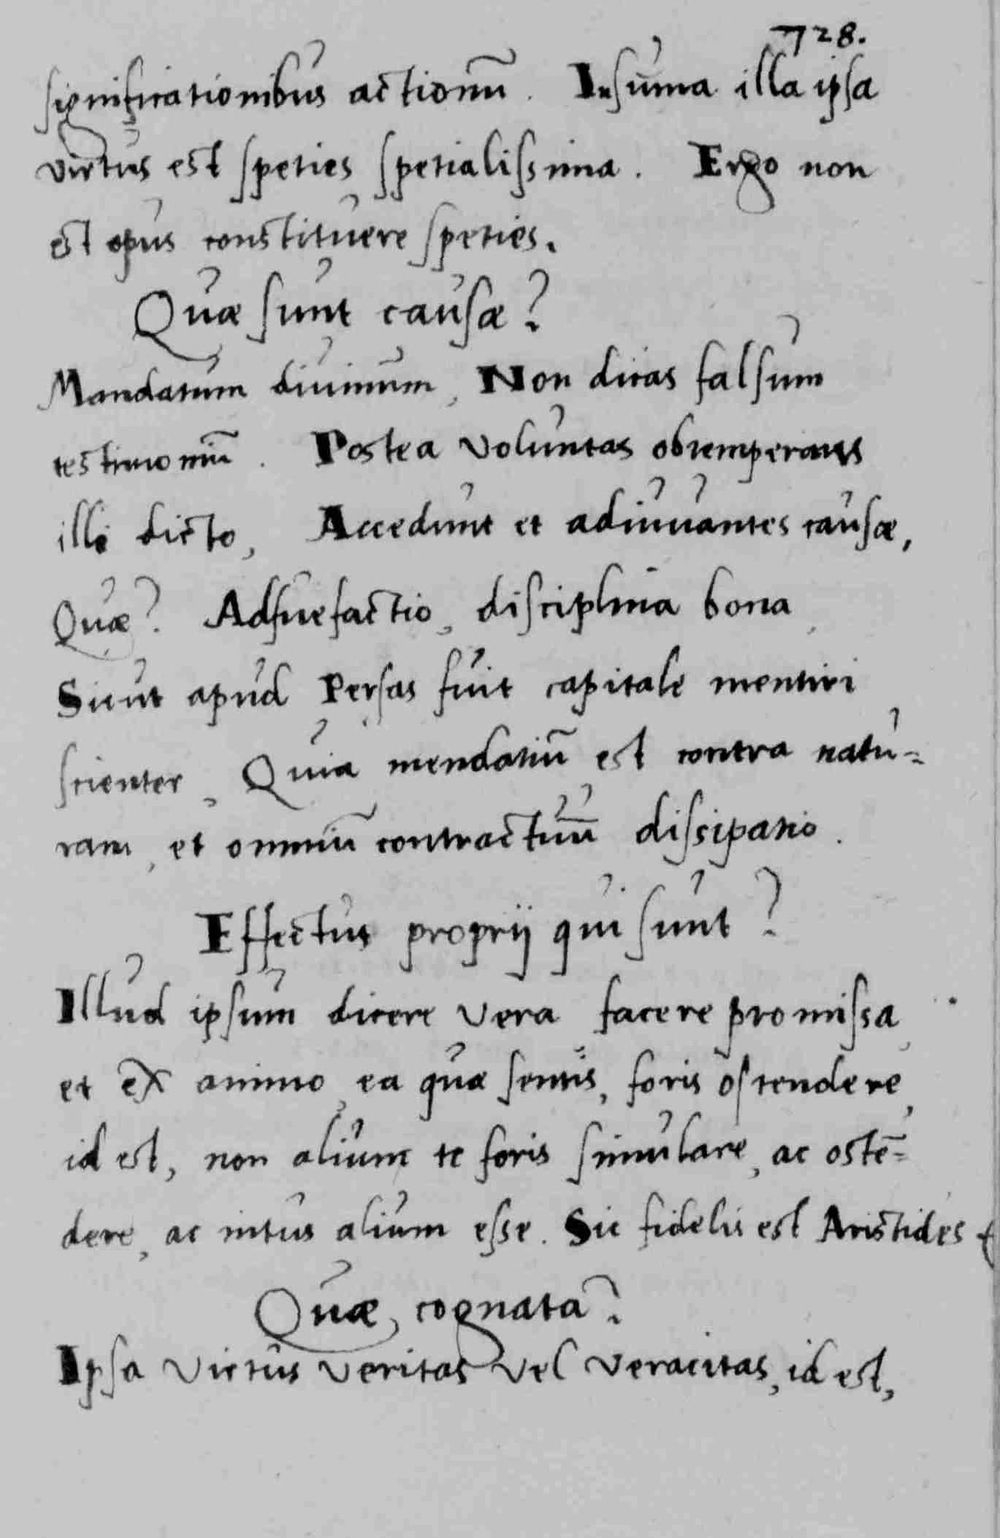 728.
significationibus actionū. In sūma illa ipsa
virtus est speties spetialissima. Ergo non
est opus constituere speties.
Quæ sunt causæ?
Mandatum diuinum, Non dicas falsum
testimoniū. Postea voluntas obtemperans
illi dicto, Accedunt et adiuuantes causæ,
Quæ? Adsuefactio, disciplina bona
Sicut apud Persas fuit capitale mentiri
scienter, Quia mendatiū est contra natu-
ram, et omniū contractuū dissipatio.
Effectus proprij qui sunt?
Illud ipsum dicere vera facere promissa,
et ex animo, ea quæ sentis, foris ostendere,
id est, non alium te foris simulare, ac ostē-
dere, ac intus alium esse. Sic fidelis est Aristides
Quæ cognata?
Ipsa virtus veritas vel veracitas, id est,